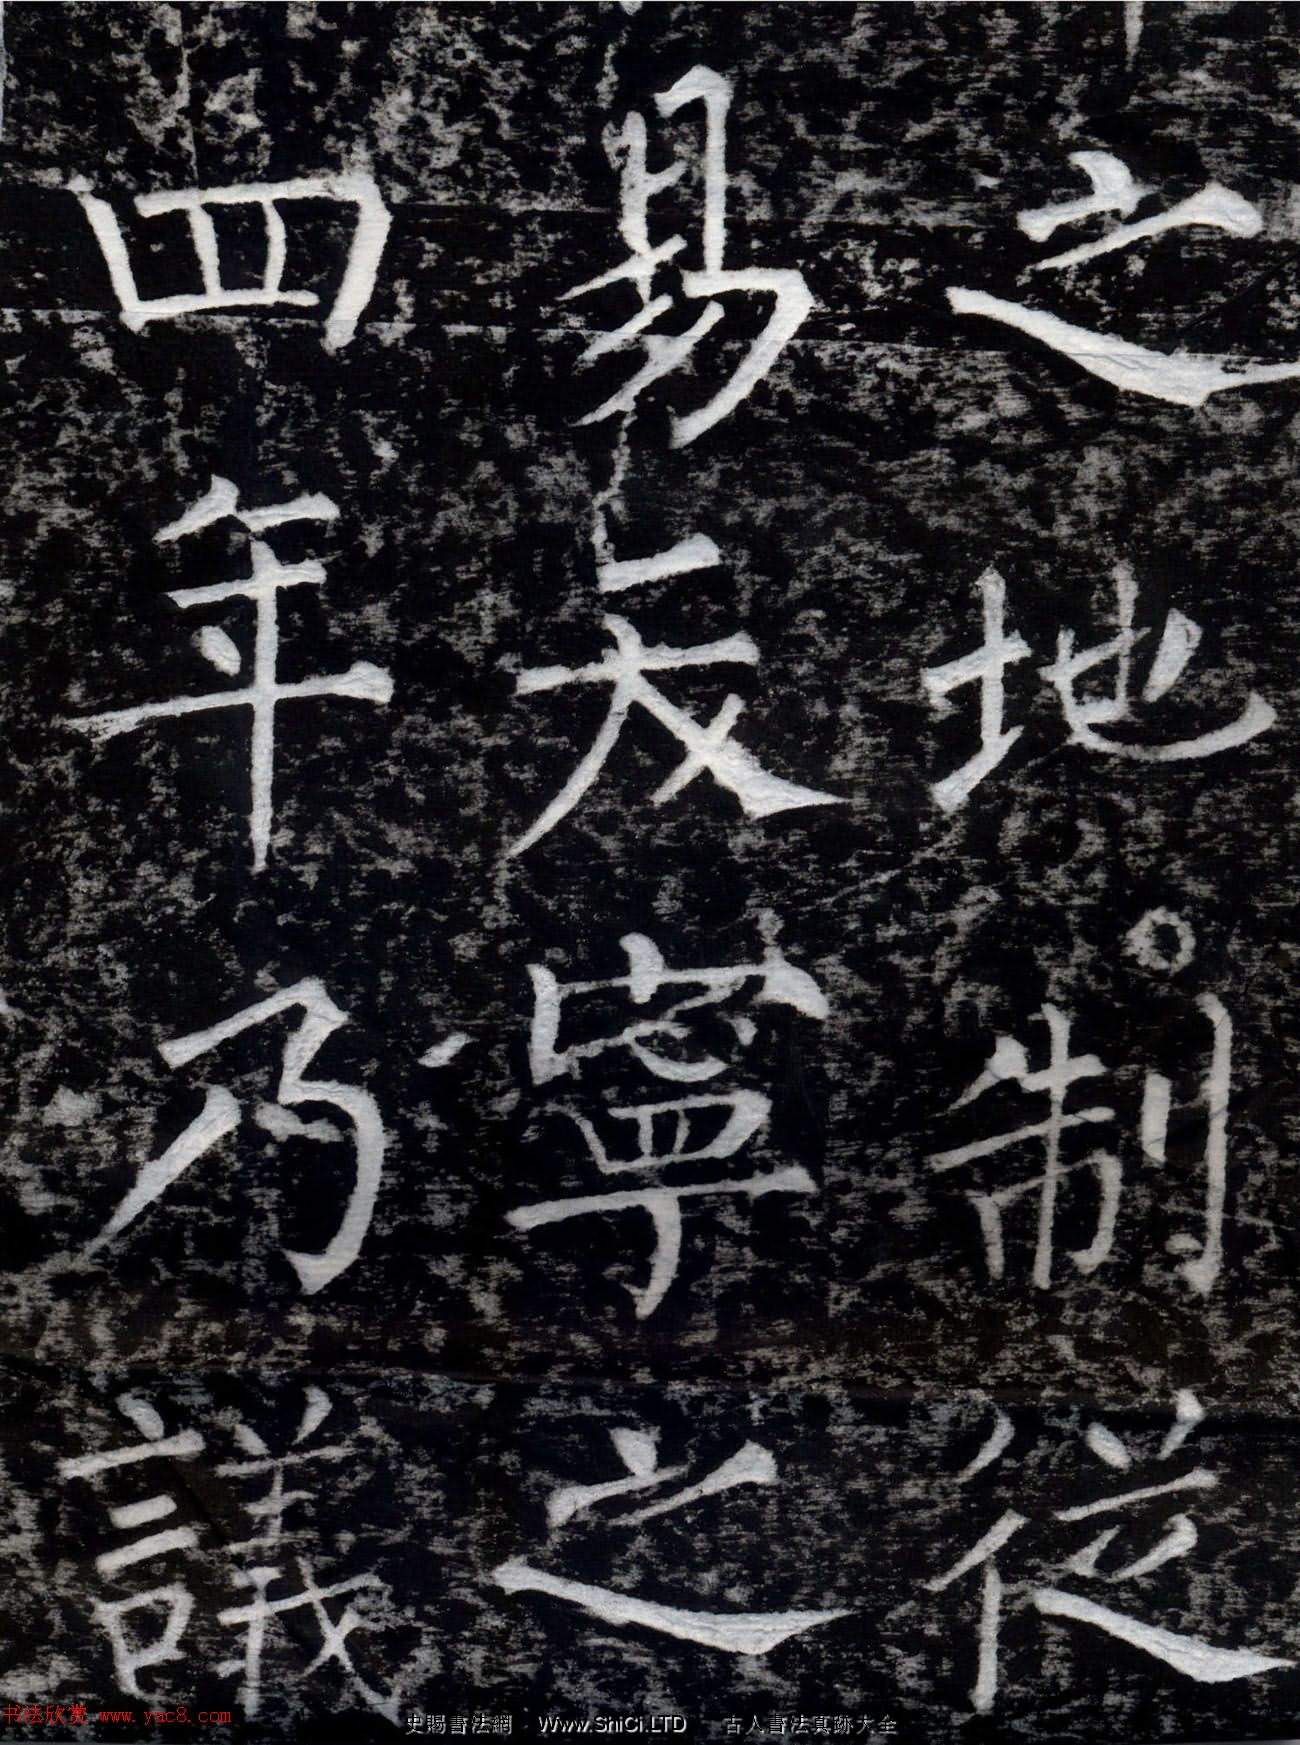 之地制從
易友寧之
四年乃議
书法欣赏 www.yac8.com
史賜書法網 Www.ShiCi.LTD 古人書法真跡大全